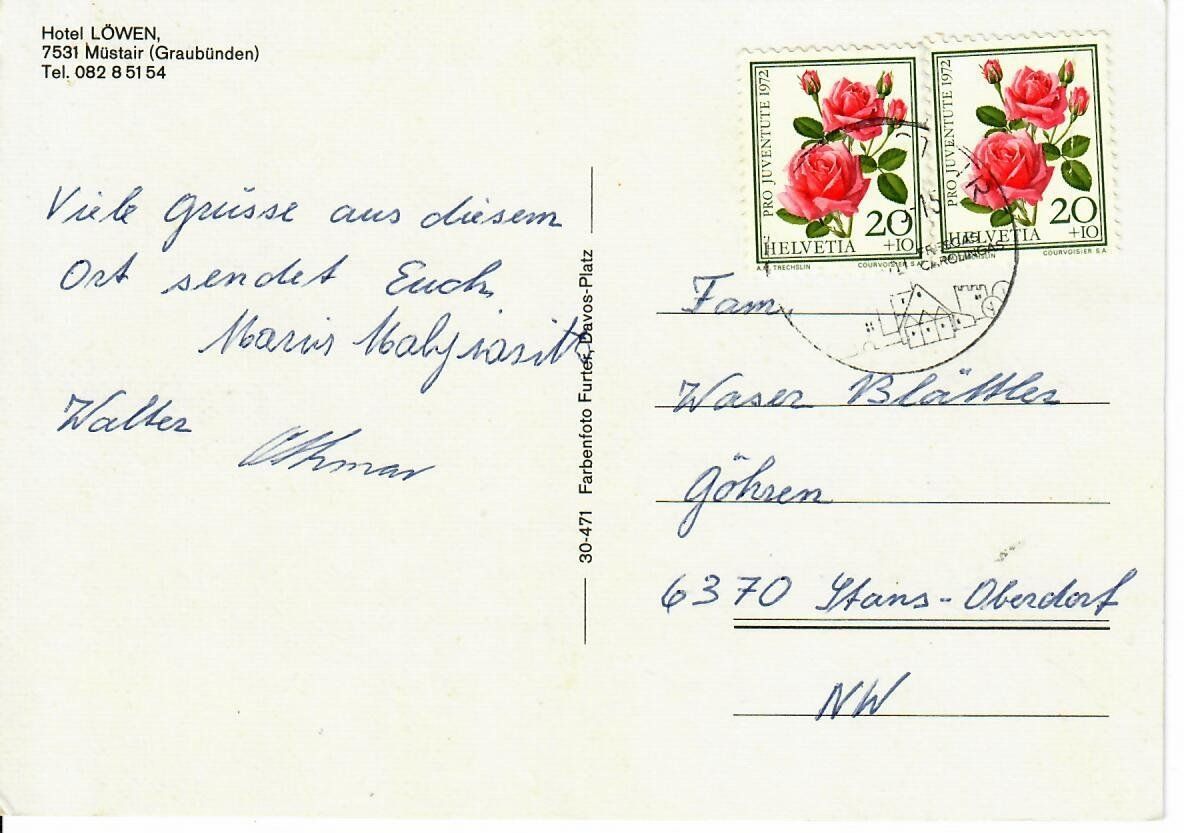 Hotel LÖWEN,
7531 Müstair (Graubünden)
Tel. 082 8 51 54
Viele Grüsse aus diesem
Ort sendet Euch
Walter
Othmar
30-471 Farbenfoto Furter, Davos-Platz
PRO JUVENTUTE 1972
20
+10
HELVETIA
A.M. TRECHSLIN COURVOISIER S.A.
PRO JUVENTUTE 1972
20
+10
HELVETIA
COURVOISIER S.A.
CAROLINGAS
Fam.
Waser Blättler
Göhren
6370 Stans-Oberdorf
NW